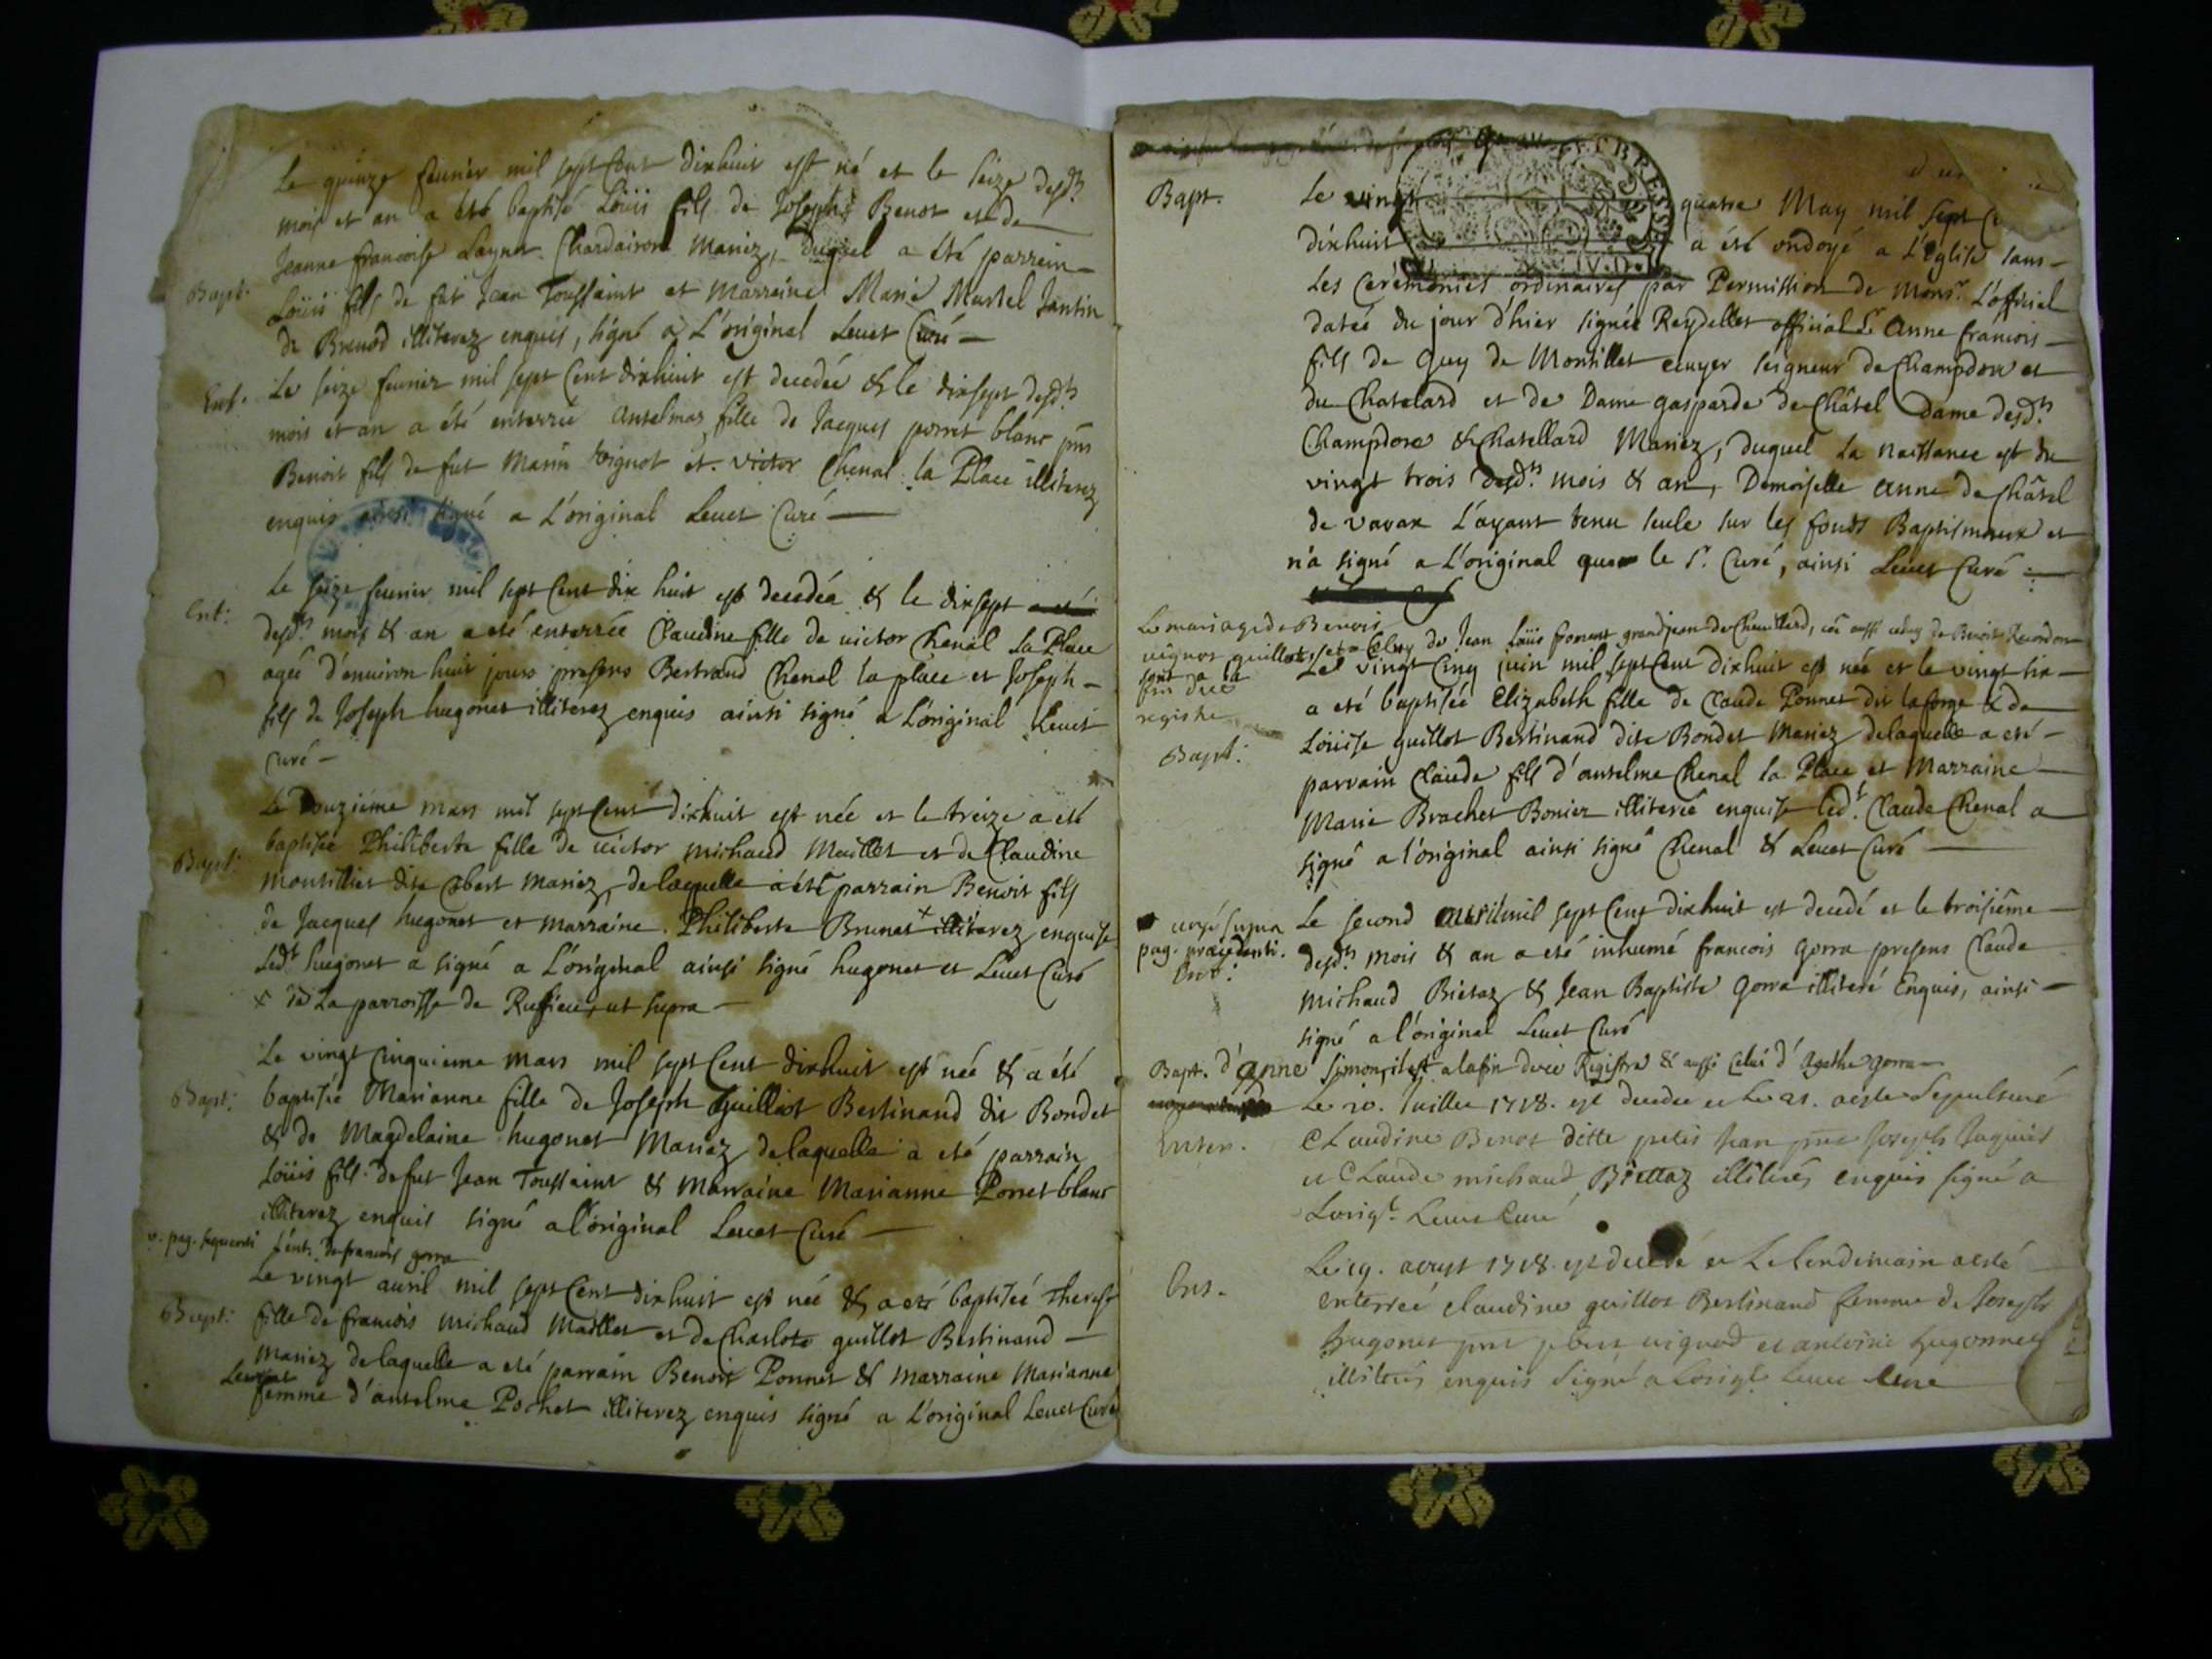 Le quinze feurier mil sept Cent dixhuit est né et le seize desd.ts
mois et an a été baptisé Loüis fils de Joseph Benot et de
Jeanne francoise Chardairon Mariez, duquel a été parrein
Bapt. Loüis fils de fut Jean Toussaint et Marreine Marie Martel Jantin
de Brenod illiterez enquis, signé a L'original Leuet Curé
Ent. Le seize feurier mil sept Cent dixhuit est decedée & le dixsept desd.ts
mois et an a été enterrée fille de Jacques porret blanc pns
Benoit fils de fut Marin uignot et victor Chenal la Place illiterez
enquis ainsi signé a L'original Leuet Curé
Ent: Le seize feurier mil sept Cent dix huit est decedée & le dixsept
desd.ts mois & an a eté enterrée Claudine fille de uictor Chenal La Place
agée d'enuiron huit jours presens Bertrand Chenal la place et Joseph
fils de Joseph hugonet illiterez enquis ainsi signé a L'original Leuet
Curé
Le Douziéme mars mil sept Cent dixhuit est née et le treize a eté
Bapt: baptisée Philiberte fille de uictor michaud Maillet et de Claudine
montillet dite Mariez, delaquelle a été parrain Benoit fils
de Jacques hugonet et marraine Philiberte Brunet + illiterez enquise
Led.t hugonet a signé a L'original ainsi signé hugonet et Leuet Curé
+ de La parroisse de Ruffieu, ut supra
Le vingt Cinquieme mars mil sept Cent dixhuit est née & a été
Bapt: baptisée Marianne fille de Joseph Guilliot Bertinand dit Bondet
& de Magdelaine hugonet Mariez delaquelle a eté parrain
Loüis fils de fut Jean Toussaint & Marraine Marianne Porret blanc
illiterez enquis signé a l'original Leuet Curé
v. pag. sequenti l'ent. de francois gorra
Le vingt auril mil sept Cent dixhuit est née & a eté baptisée Therese
Bapt: fille de francois michaud Maillet et de Charlote guillot Bertinand
Mariez delaquelle a eté parrain Benoit Ponnet & marraine Marianne
femme d'antelme Pochet illiterez enquis signé a L'original Leuet Curé
Bapt. Le vingt quatre May mil sept
dixhuit a été ondoyé a L'Eglise sans
Les Cerémonies ordinaires par Permission de Mons.r L'official
datée du jour d'hier signée Reydellet official S.r Anne francois
fils de Guy de Montillet ecuyer seigneur de Champdor et
du Chatelard et de Dame gasparde de Châtel Dame desd.ts
Champdore & Chatellard Mariez, duquel La naissance est du
vingt trois desd.ts mois & an, Demoiselle Anne de Châtel
de varax L'ayant tenu seule sur les fonds Baptismaux et
n'a signé a L'original que le S.r Curé, ainsi Leuet Curé
Le mariage de Benoit
uignot guillot, et Celuy de Jean Loüis ponent grandjean de Cheuillard, aussi de Benoit
sont a la
fin du
registre
Le vingt Cinq juin mil sept Cent dixhuit est née et le vingt six
a eté baptisée Elizabeth fille de Claude Ponnet dit la forge & de
Bapt: Loüise guillot Bertinand dite Bondet Mariez delaquelle a eté
parrain Claude fils d'antelme Chenal la Place et Marraine
Marie Brachet Bonier illiterée enquise led.t Claude Chenal a
signé a l'original ainsi signé Chenal & Leuet Curé
supra
pag. praecedenti. Le second auril mil sept Cent dixhuit est decedé et le troisiéme
Ent: desd.ts mois & an a eté inhumé francois gorra presens Claude
michaud Bietaz & Jean Baptiste Gorra illiteré Enquis, ainsi
signé a l'original Leuet Curé
Bapt. d'Anne Simon, il est a la fin du Registre & aussi Celui d'Agathe gorra
Le 20. Juillet 1718. est decedee et Le 21. a este Sepulturé
Enter. Claudine Benot ditte petit Jean pnt Joseph Jaquiet
et Claude michaud Biettaz illiterés enquis signé a
Lorigl. Leuet Curé
Ent. Le 19. aoust 1718. est decedé et Le Lendemain a esté
enterreé claudine guillot Bertinand femme de Joseph
hugonet pnt uignod et antoine hugonnet
illiterés enquis Signé a Lorigl. Leuet Cure